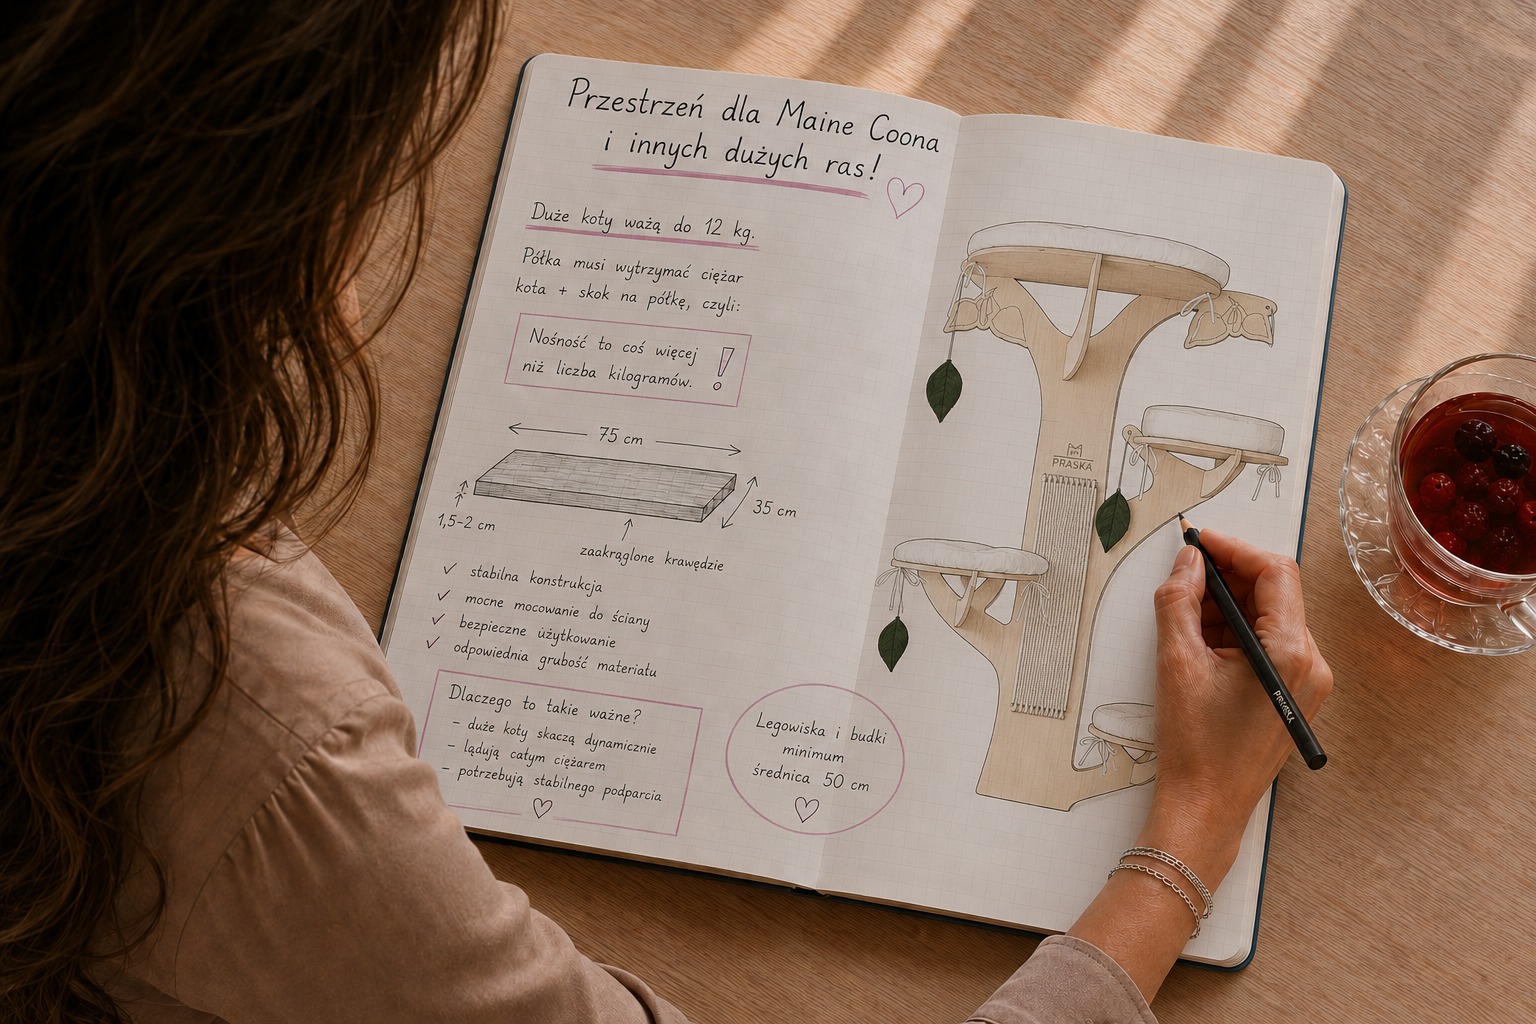 Przestrzeń dla Maine Coona
i innych dużych ras!
Duże koty ważą do 12 kg.
Półka musi wytrzymać ciężar
kota + skok na półkę, czyli:
Nośność to coś więcej
niż liczba kilogramów. !
75 cm
35 cm
1,5-2 cm
zaakrąglone krawędzie
✓ stabilna konstrukcja
✓ mocne mocowanie do ściany
✓ bezpieczne użytkowanie
✓ odpowiednia grubość materiału
Dlaczego to takie ważne?
- duże koty skaczą dynamicznie
- lądują całym ciężarem
- potrzebują stabilnego podparcia
Legowiska i budki
minimum
średnica 50 cm
PRASKA